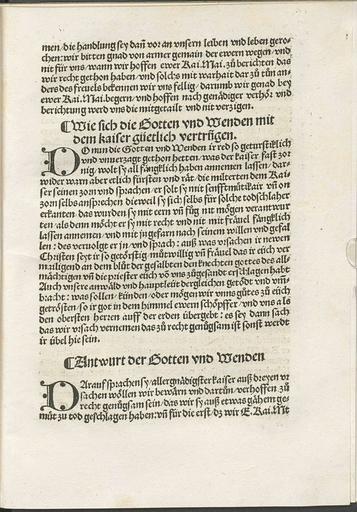 men/die handlung sey dañ vor an vnsern leiben vnd leben gero-
chen: wir bitten gnad von armer gemain der ewern wegen/vnd
nit für vns/wann wir hoffen ewer Kai. Mai. zů berichten das
wir recht gethon haben/vnd solchs mit warhait dar zů tůn an-
ders des freuels bekennen wir vns fellig/darumb wir genad bey
ewer Kai. Mai. begern/vnd hoffen nach genädiger verhör vnd
berichtung werd vns die mitgetailt vnd nit verzigen.
⸿Wie sich die Gotten vnd Wenden mit
dem kaiser güetlich vertrůgen.
DO nun die Gotten vnd Wenden ir red so geturstiklich
vnd vnuerzagt gethon hetten/was der kaiser fast zor
nig/wolt sy all fängklich haben annemen lassen/dar-
wider warn aber etlich fürsten vnd rät/die milterten dem Kai-
ser seinen zorn vnd sprachen/er solt sy mit senfftmůtikait vñ on
zorn selbs ansprechen dieweil sy sich selbs für solche todschlaher
erkanten/das wurden sy mit eern vñ fůg nit mögen verantwur
ten/als denn möcht er sy mit recht vnd nit mit fräuel fängklich
lassen annemen/vnd mit jn gefarn nach seinem willen vnd gefal
len: des veruolget er jn/vnd sprach: auß was vrsachen ir newen
Christen seyt ir so getörstig/můtwillig vñ fräuel das ir eüch ver
mailigend an dem blůt der gesalbten den knechten gottes des all-
mächtigen vñ die priester eüch võ vns zůgesandt erschlagen habt
Auch vnsere anwäld vnd hauptleüt dergleichen getödt vnd vm̃-
bracht: was sollen/künden/oder mögen wir vnns gůtes zů eüch
getrösten/so ir got in dem himmel ewern schöpffer/vnd vns als
den obersten herren auff der erden übergebt: es sey dann sach
das wir vrsach vernemen das zů recht genůgsam ist sonst werdt
ir übel hie sein.
⸿Antwurt der Gotten vnd Wenden
DArauf sprachen sy/allergnädigster kaiser auß dreyen vr
sachen wöllen wir bewärn vnd dartůn/verhoffen zů
recht genůgsam sein/das wir sy auß etwas gähem ge-
můt zů tod geschlagen haben: vñ für die erst/dz wir E. Kai. Mt